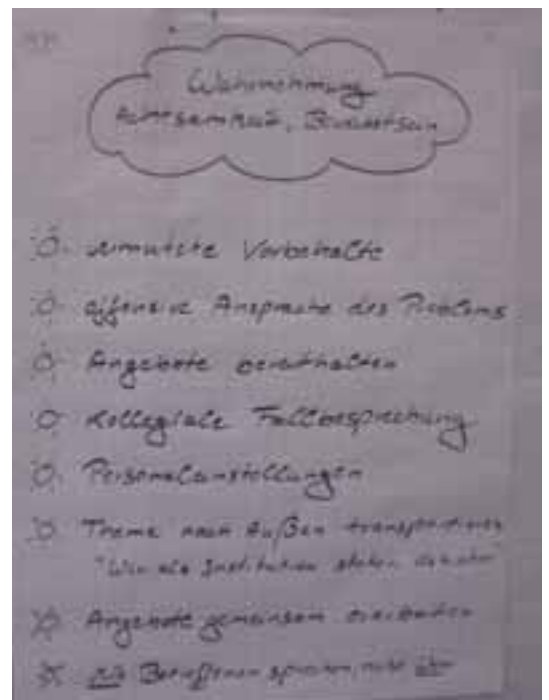 Wahrnehmung
Achtsamkeit, Bewusstsein
vermutete Vorbehalte
offensive Ansprache des Problems
Angebote bereithalten
Kollegiale Fallbesprechung
Personalanstellungen
Thema nach Außen transportieren
"Wir als Institution stehen dahinter"
Angebote gemeinsam erarbeiten
mit Betroffenen sprechen, nicht über